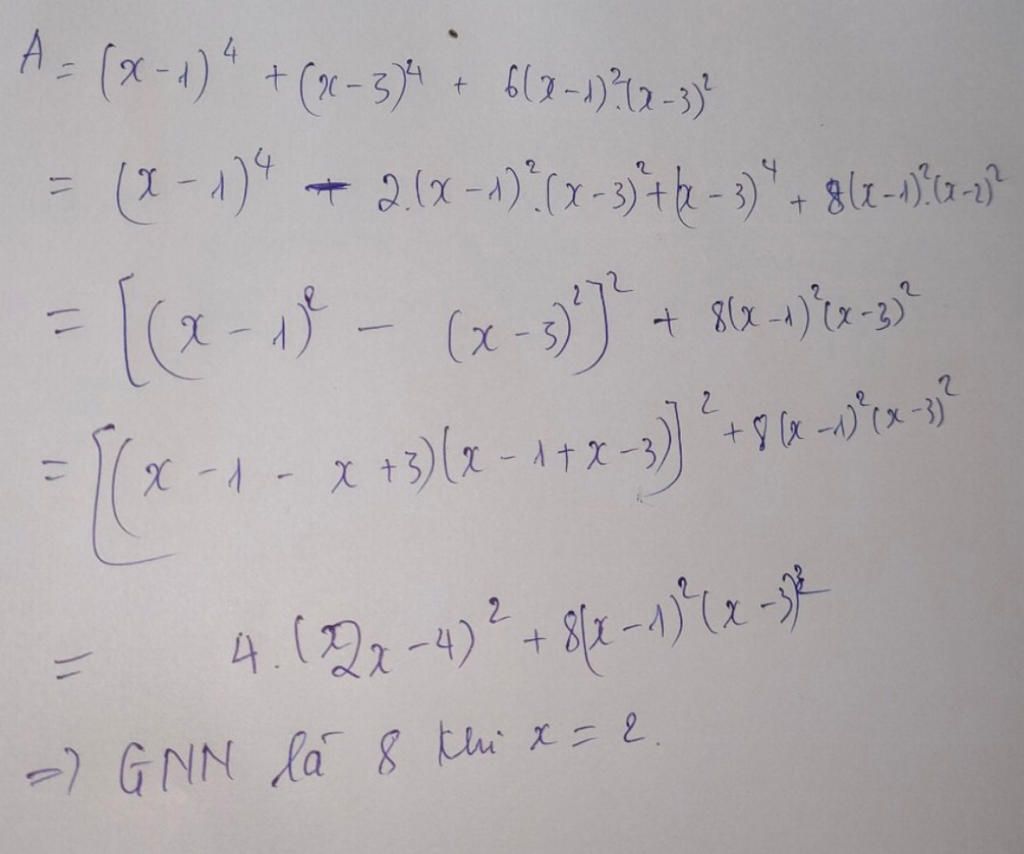 A = (x-1)⁴ + (x-3)⁴ + 6(x-1)².(x-3)²
= (x-1)⁴ - 2.(x-1)².(x-3)² + (x-3)⁴ + 8(x-1)².(x-2)²
= [(x-1)² - (x-3)²]² + 8(x-1)²(x-3)²
= [(x-1-x+3)(x-1+x-3)]² + 8(x-1)²(x-3)²
= 4.(2x-4)² + 8(x-1)²(x-3)²
=> GNN là 8 khi x = 2.